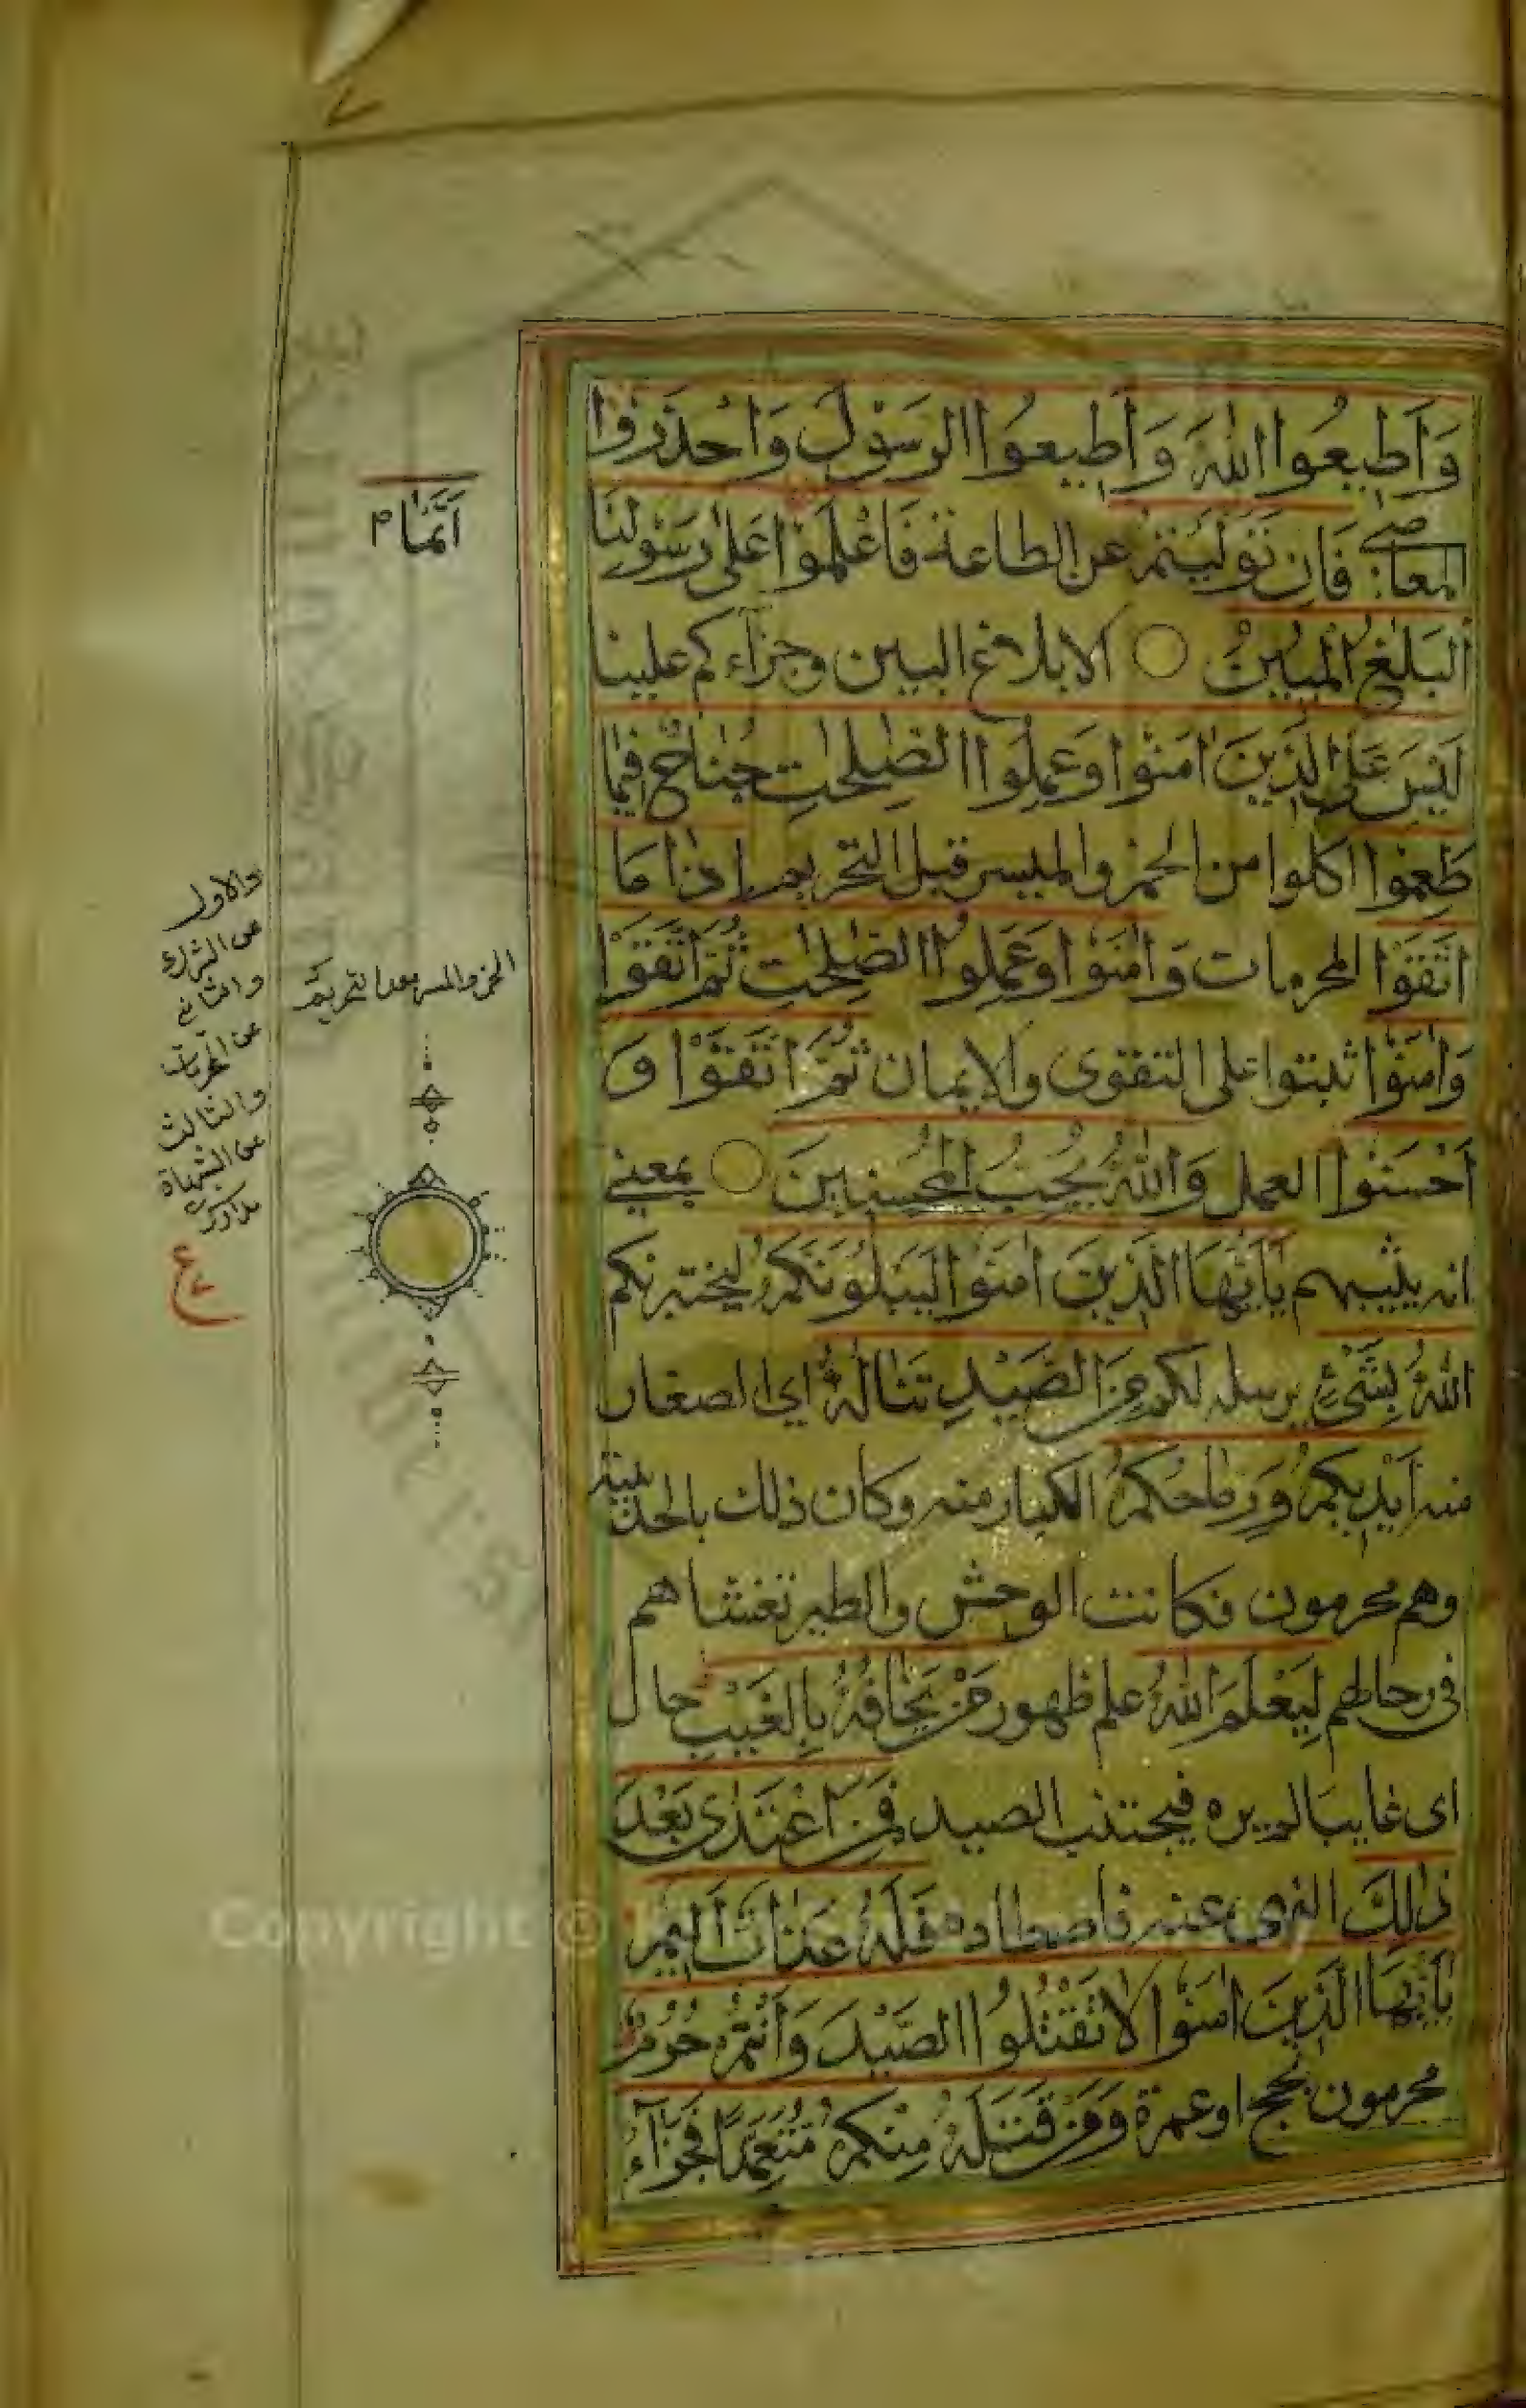 وَاَطِيعُوا اللهَ وَاَطِيعُوا الرَسُوْلَ وَاحْذَرُوْا
المعاصى فَاِن تَوَلَّيْتُمْ عن الطاعة فَاعْلَمُوْا عَلٰى رَسُوْلِنَا
اَنَّمَا م
الْبَلٰغُ الْمُبِيْنُ ○ الا بلاغ البين وجزآءكم علينا
لَيْسَ عَلَى الَّذِيْنَ اٰمَنُوْا وَعَمِلُوا الصّٰلِحٰتِ جُنَاحٌ فِيْمَا
طَعِمُوْا اكلوا من الخمر والميسر قبل التحريم اِذَا مَا
اتَّقَوْا المحرمات وَاٰمَنُوْا وَعَمِلُوا الصّٰلِحٰتِ ثُمَّ اتَّقَوْا
الخمر والميسر بعد التحريم
وَاٰمَنُوْا ثبتوا على التقوى والايمان ثُمَّ اتَّقَوْا وَ
اَحْسَنُوْا العمل وَاللهُ يُحِبُّ الْمُحْسِنِيْنَ ○ بمعنى
انه يثيبهم يٰاَيُّهَا الَّذِيْنَ اٰمَنُوْا لَيَبْلُوَنَّكُمُ ليختبرنكم
اللهُ بِشَىْءٍ يرسله لكم مِنَ الصَّيْدِ تَنَالُهُ اى الصغار
منه اَيْدِيْكُمْ وَرِمَاحُكُمْ الكبار منه وكان ذلك بالحديبية
وهم محرمون فكانت الوحش والطير تغشاهم
فى رحالهم لِيَعْلَمَ اللهُ علم ظهور مَنْ يَخَافُهُ بِالْغَيْبِ حال
اى غايبا لم يره فيجتنب الصيد فَمَنِ اعْتَدٰى بَعْدَ
ذٰلِكَ النهى عنه فاصطاده فَلَهُ عَذَابٌ اَلِيْمٌ
يٰاَيُّهَا الَّذِيْنَ اٰمَنُوْا لَا تَقْتُلُوا الصَّيْدَ وَاَنْتُمْ حُرُمٌ
محرمون بحج او عمرة وَمَنْ قَتَلَهُ مِنْكُمْ مُتَعَمِّدًا فَجَزَآءٌ
والاول
عن الشرك
والثانى
عن المحرمات
والثالث
عن الشبهات
مدارك
Copyright ©